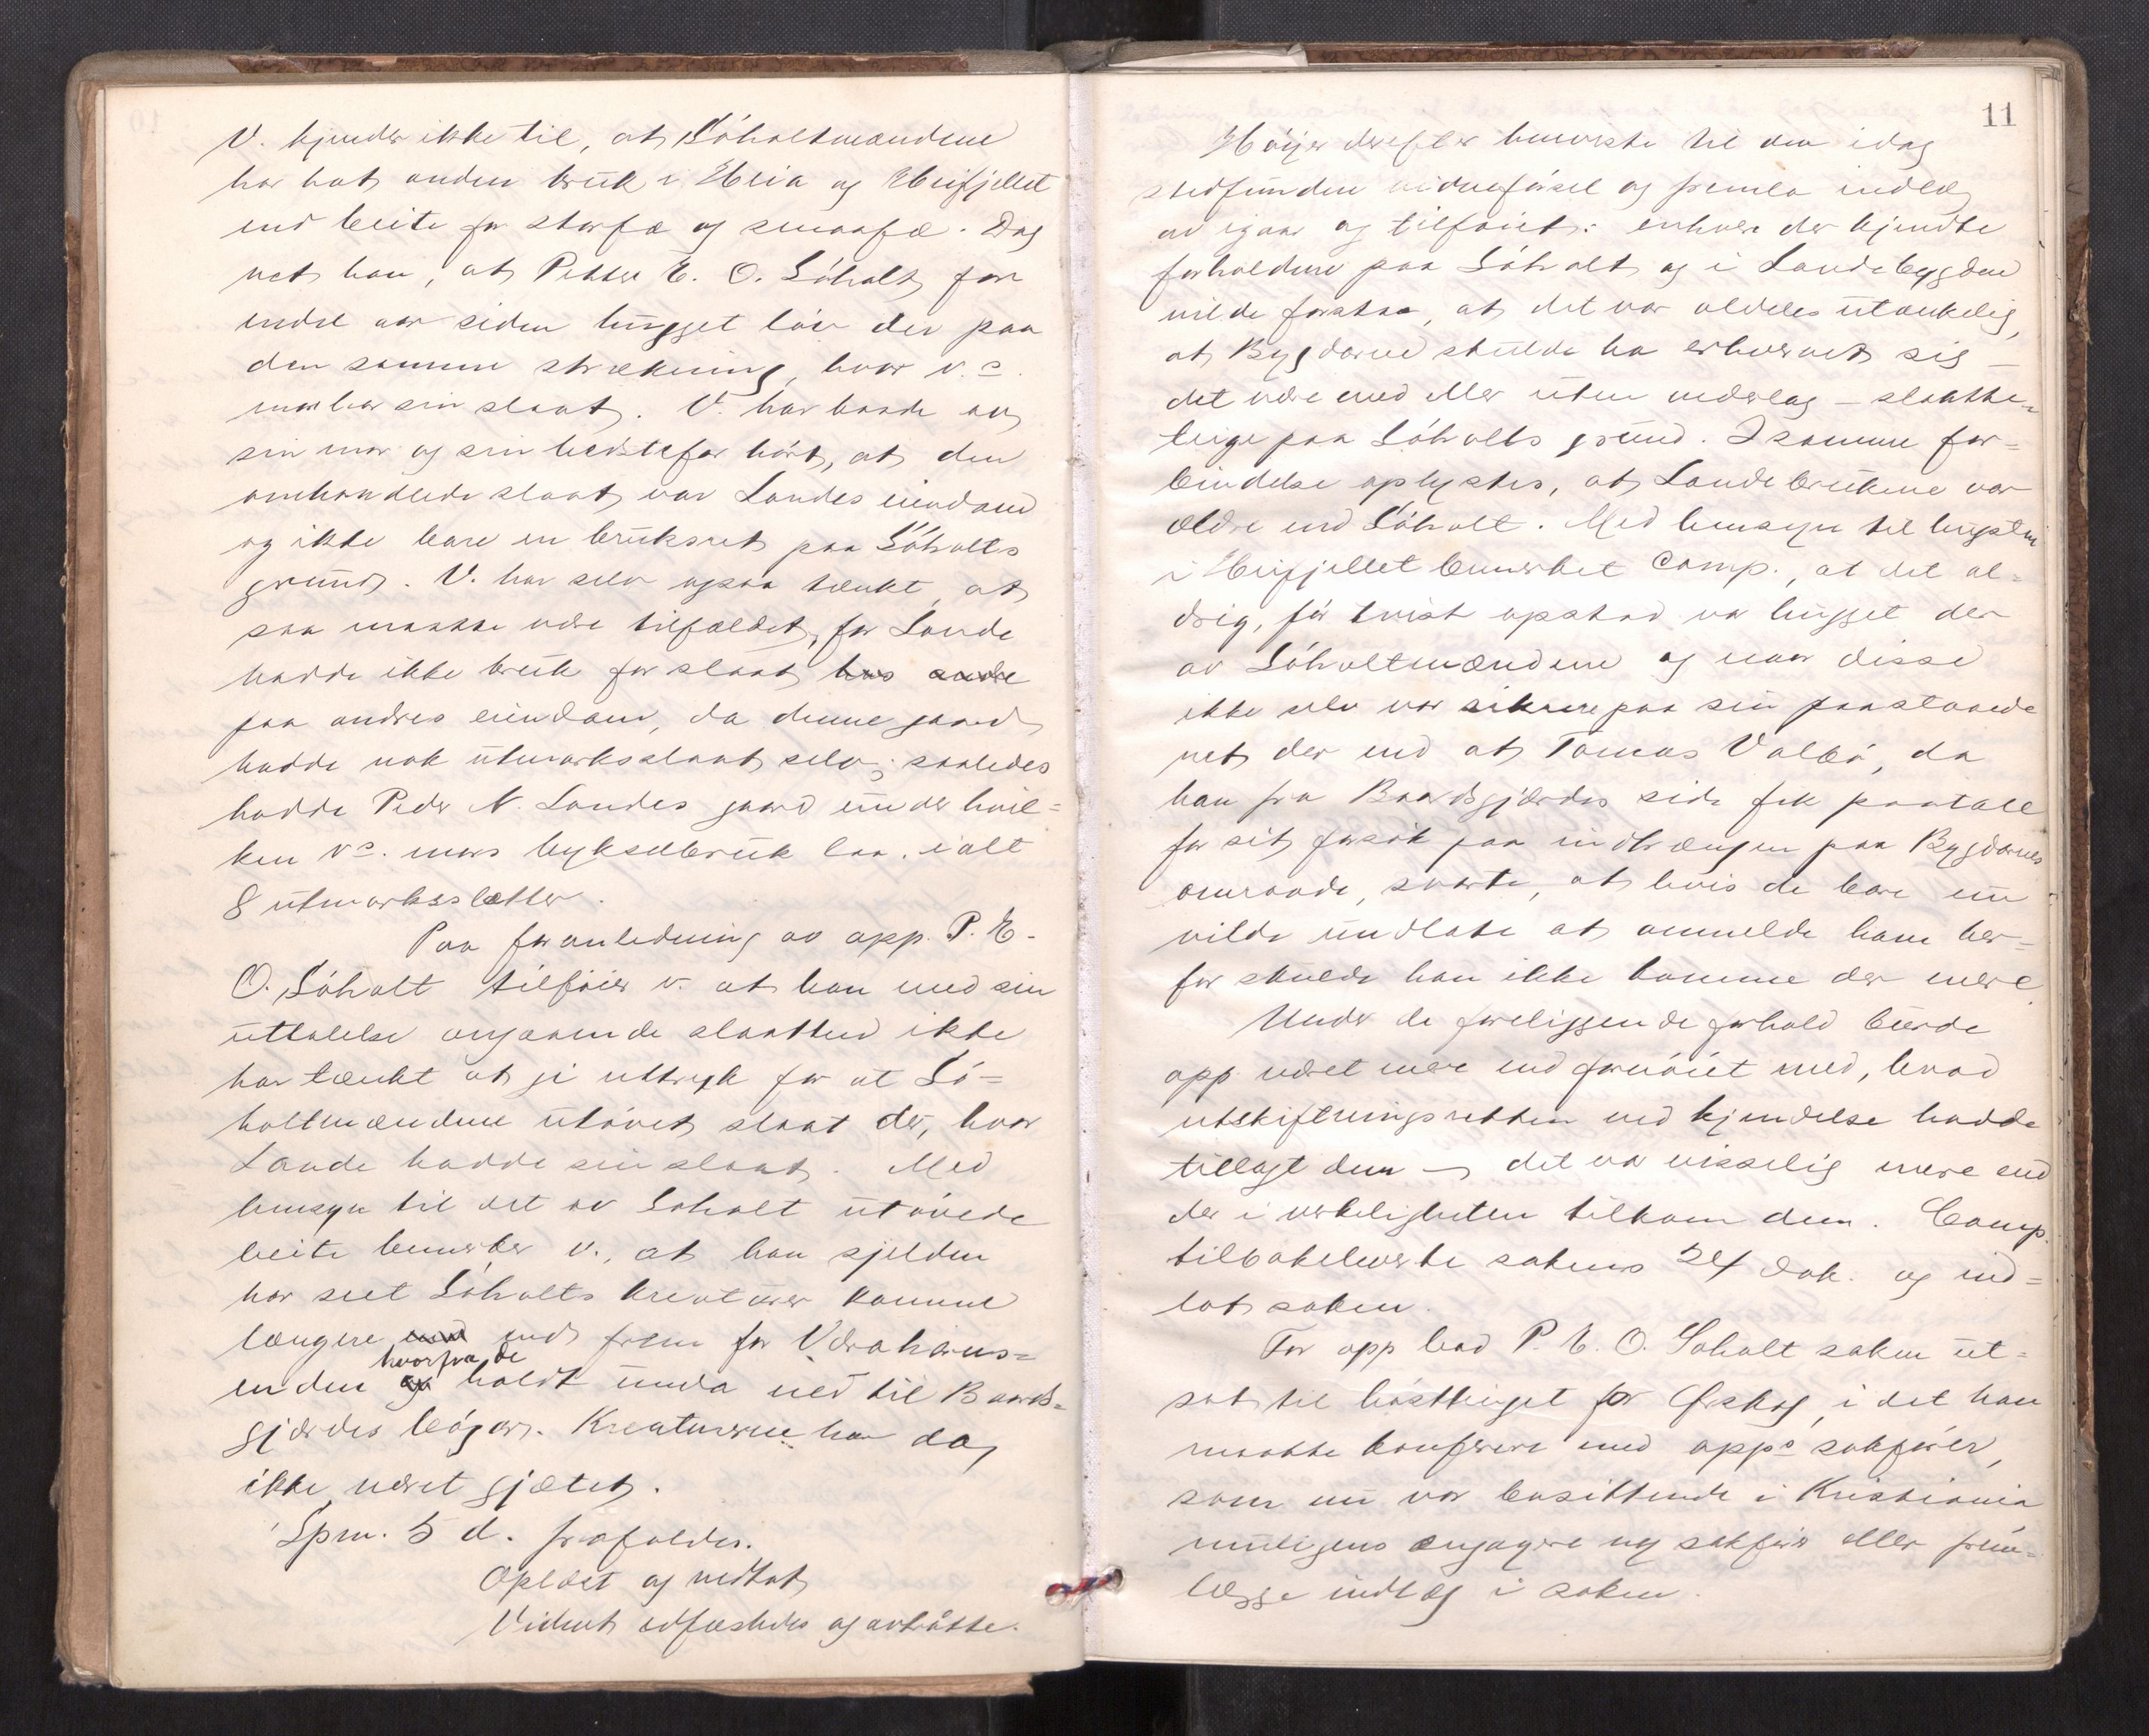 V. kjender ikke til, at Søholtmændene
har hat anden bruk i Heia og Heifjellet
end beite for storfæ og smaafæ. Dog
vet han, at Petter E. O. Søholt for
endel aar siden hugget løv der paa
den samme strækning, hvor v.s
mor har sin slaat. V. har baade av
sin mor og sin bedstefar hørt, at den
omhandlede slaat var Landes eiendom
og ikke bare en bruksret paa Søholts
grund. V. har selv ogsaa tænkt, at
saa maatte være tilfældet, for Lande
hadde ikke bruk for slaat hos andre
paa andres eiendom, da denne gaard
hadde nok utmarksslaat selv; saaledes
hadde Peder N. Landes gaard under hvil=
ken v.s mors bykselbruk laa, ialt
8 utmarksslætter.
Paa foranledning av app. P. E.
O. Søholt tilføier v. at han med sin
uttalelse angaaende slaatten ikke
har tænkt at gi uttryk for at Sø=
holtmændene utøvet slaat der, hvor
Lande hadde sin slaat. Med
hensyn til det av Søholt utøvede
beite bemerker v., at han sjelden
har seet Søholts kreaturer komme
længere end frem for
enden hvorfra de holdt unda ned til Baards=
gjærdes bøgar. Kreaturene har dog
ikke været gjætet.
Spm. 5 d. frafaldes.
Oplæst og vedtat
Vidnet edfæstedes og avtraatte.
11
Høyer derefter henviste til den idag
stedfundne vidneførsel og fremla indlæg
av igaar og tilføiet: enhver der kjendte
forholdene paa Søholt og i Landebygden
vilde forstaa, at det var aldeles utænkelig,
at Bygdarne skulde ha erhvervet sig –
det være med eller uten vederlag – slaatte=
teige paa Søholts grund. I samme for=
bindelse oplystes, at Landebrukene var
ældre end Søholt. Med hensyn til hugsten
i Heifjellet bemerket Comp., at det al=
drig, før tvist opstod var hugget der
av Søholtmændene og naar disse
ikke selv var sikrere paa sin paastaaede
ret der end at Tomas Valbø, da
han fra Baardsgjærdes side fik paatale
for sit forsøk paa indtrængen paa Bygdarnes
omraade, svarte, at hvis de bare nu
vilde undlate at anmelde ham her=
for skulde han ikke komme der mere.
Under de foreliggende forhold burde
app. været mere end fornøiet med, hvad
utskiftningsretten ved kjendelse hadde
tillagt dem – det var visselig mere end
der i virkeligheten tilkom dem. Comp.
tilbakeleverte sakens 24 dok. og ind=
lot saken.
For app bad P. E. O. Søholt saken ut=
sat til høsttinget for Ørskog, i det han
maatte konferere med app.s sakfører,
som nu var bosittende i Kristiania
muligens engagere ny sakfører eller frem=
lægge indlæg i saken.